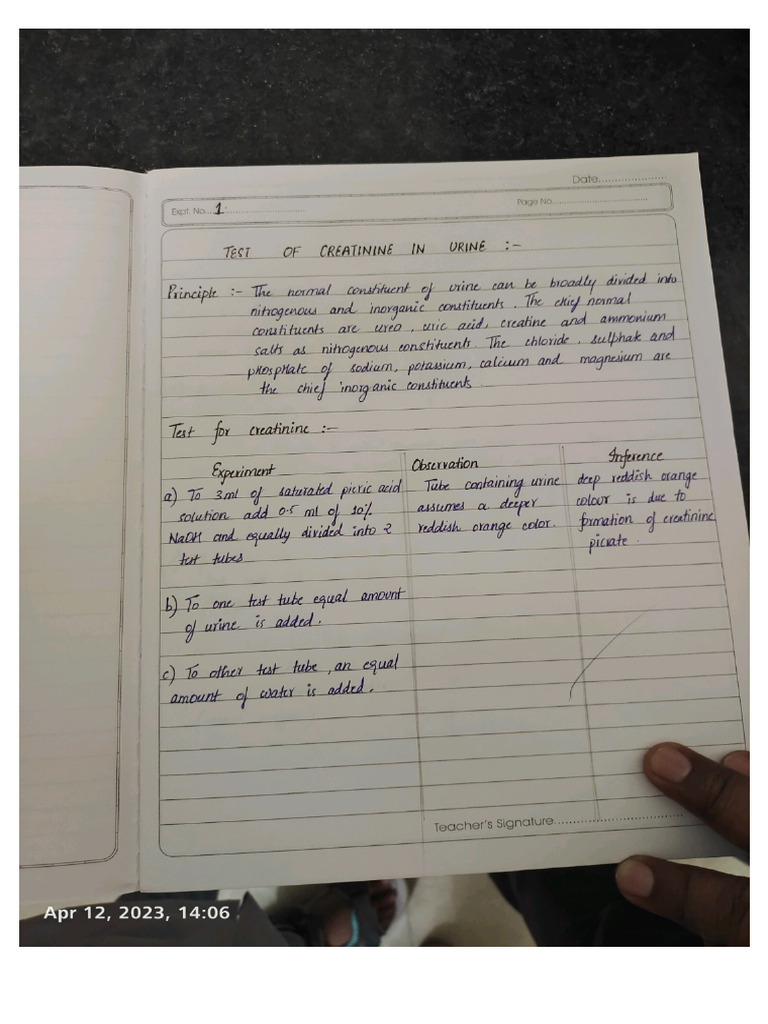 Date....................
Expt. No. 1 ............................
Page No..................................
TEST OF CREATININE IN URINE :-
Principle :- The normal constituent of urine can be broadly divided into
nitrogenous and inorganic constituents. The chief normal
constituents are ureo, uric acid, creatine and ammonium
salts as nitrogenous constituents. The chloride, sulphak and
phosphate of sodium, potassium, calicum and magnesium are
the chief inorganic constituents.
Test for creatinine :-
Experiment
a) To 3ml of saturated picric acid
solution add 0.5 ml of 10%
NaOH and equally divided into 2
test tubes
b) To one test tube equal amount
of urine is added.
c) To other test tube, an equal
amount of water is added.
Observation
Tube containing urine
assumes a deeper
reddish orange color.
Inference
deep reddish orange
colour is due to
formation of creatinine
picrate.
Teacher's Signature..............................
Apr 12, 2023, 14:06